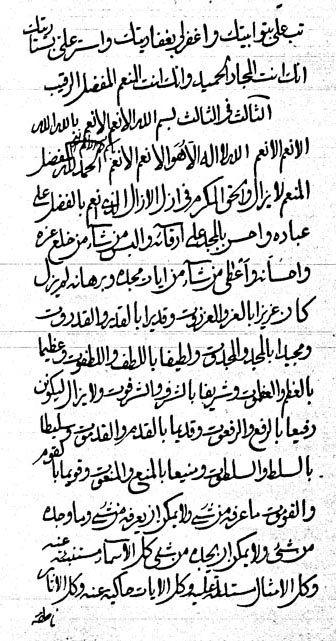 تب علی بتوابیتك و اغفرلی بغفاریتك و استر علی بستاریتك
انك انت المجاد الحمید و انك انت المنعم المفضل الرقیب
الثالث فی الثالث بسم الله الانعم الانعم بالله الله
الانعم الانعم الله لا اله الا هو الانعم الانعم الحمد لله المفضل
المنعم لا یزال و الحی المكرم فی ازل الازال الذی نعم بالفضل علی
عباده و احسن بالمجد علی ارقائه و البس من شاء من خلع عزه
و احسانه و اعطی من شاء من ایات مجده و برهانه لم یزل
كان عزیزا بالعز و العززوت و قدیرا بالقدر و القدروت
و مجیدا بالمجد و المجدوت و لطیفا باللطف و اللطفوت و عظیما
بالعظم و العظموت و شریفا بالشرف و الشرفوت و لا یزال لیكونن
رفیعا بالرفع و الرفعوت و قدیما بالقدم و القدموت و سلیطا
بالسلط و السلطوت و منیعا بالمنع و المنعوت و قویما بالقوم
و القوموت ما عرفه من شیء و لا یمكن ان یعرفه من شیء و ما وحده
من شیء و لا یمكن ان یوحده من شیء كل الاسماء مستنبئة عنه
و كل الامثال مستدلة علیه و كل الایات حاكیة عنه و كل الاثار
ناطقة